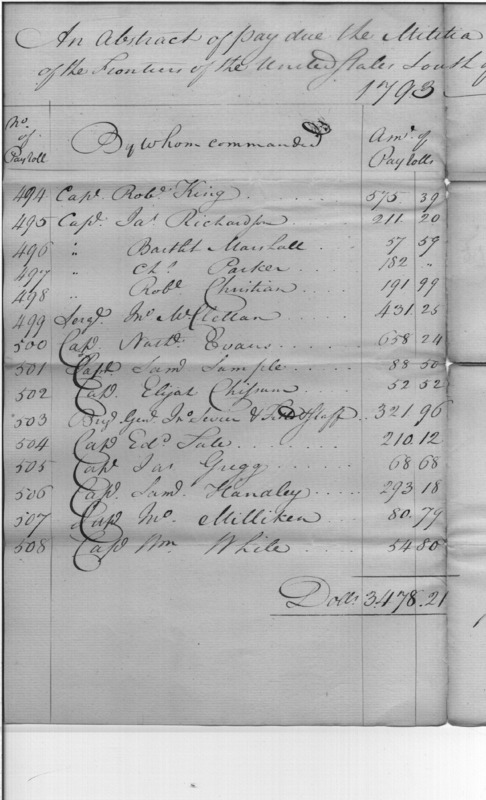 An Abstract of pay due the Militia
of the Frontiers of the United States South of
1793
No. of Payroll By whom commanded Amt. of Pay rolls
494 Capt. Robt. King 575 39
495 Capt. Jas. Richardson 211 20
496 " Bartlet Marshall 57 59
497 " Chs. Parker 182 "
498 " Robt. Christian 191 99
499 Sergt. Jno. McClellan 431 25
500 Capt. Nathl. Evans 658 24
501 Capt. Saml. Sample 88 50
502 Capt. Elijah Chisum 52 52
503 Brig. Genl. Jno. Sevier & Staff 321 96
504 Capt. Edd. Tate 210.12
505 Capt. Jas. Gregg 68 68
506 Capt. Saml. Handley 293 18
507 Capt. Jno. Milliken 80.79
508 Capt. Wm. White 54 80
Dolls. 3478.21